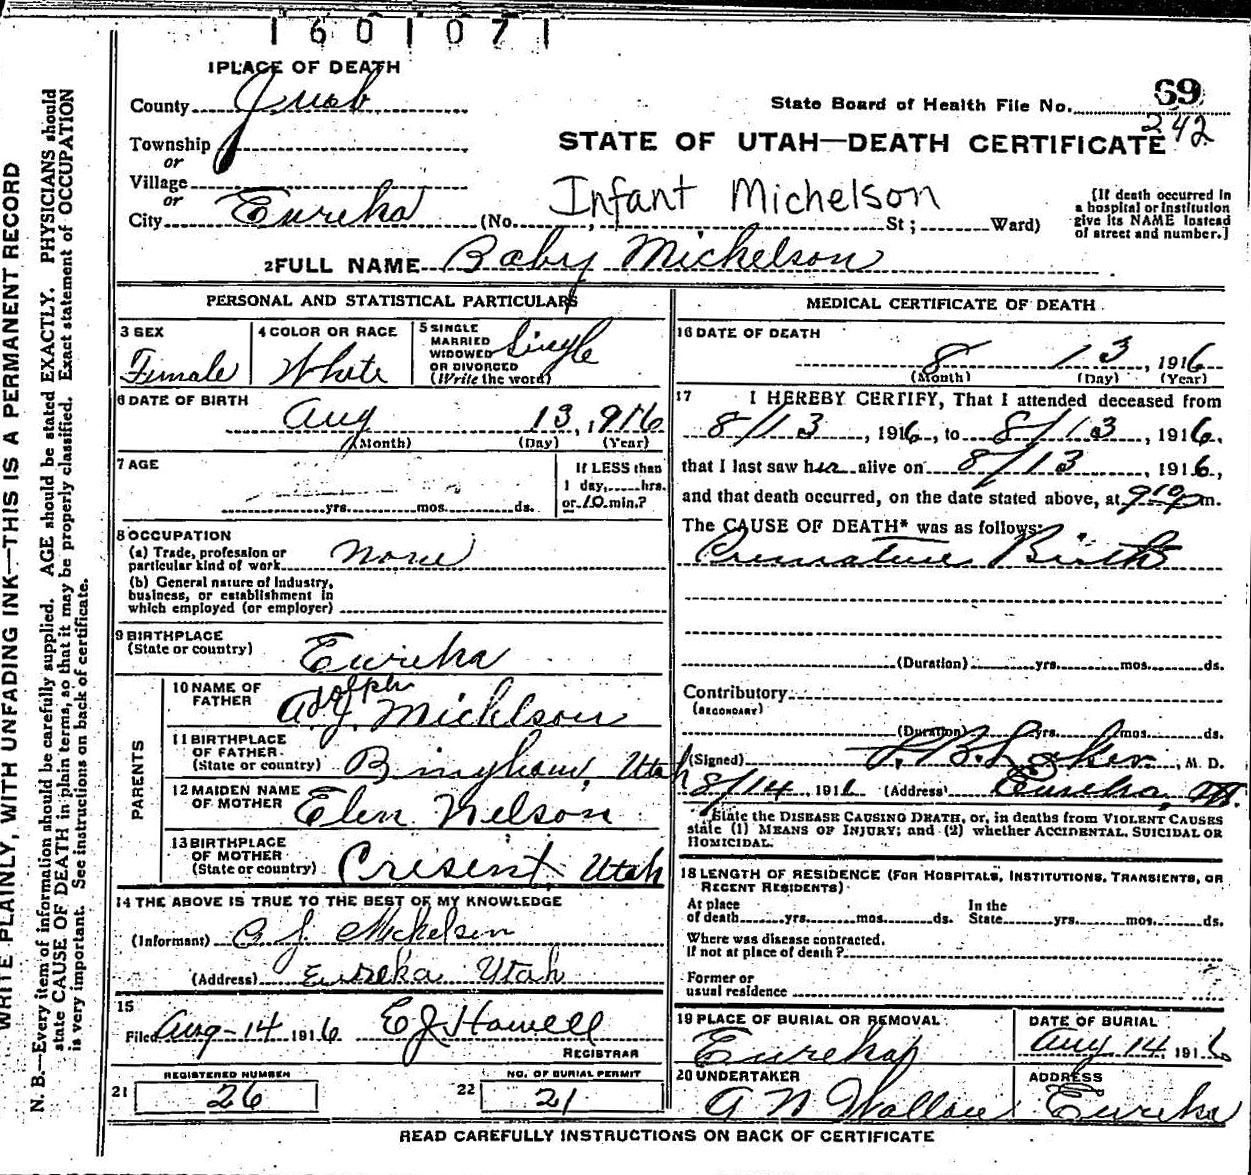 1601071
1 PLACE OF DEATH
County Juab
State Board of Health File No. 69
242
Township
or
STATE OF UTAH—DEATH CERTIFICATE
Village
or
City Eureka (No. , St; Ward)
Infant Michelson
[If death occurred in
a hospital or institution
give its NAME instead
of street and number.]
2 FULL NAME Baby Michelson
PERSONAL AND STATISTICAL PARTICULARS
3 SEX
Female
4 COLOR OR RACE
White
5 SINGLE
MARRIED
WIDOWED
OR DIVORCED
(Write the word)
Single
6 DATE OF BIRTH
Aug 13, 1916
(Month) (Day) (Year)
7 AGE
yrs. mos. ds.
If LESS than
1 day, hrs.
or 10 min.?
8 OCCUPATION
(a) Trade, profession or
particular kind of work None
(b) General nature of Industry,
business, or establishment in
which employed (or employer)
9 BIRTHPLACE
(State or country) Eureka
PARENTS
10 NAME OF
FATHER
Adolph
A J. Michlson
11 BIRTHPLACE
OF FATHER
(State or country) Bingham, Utah
12 MAIDEN NAME
OF MOTHER Elen Nelson
13 BIRTHPLACE
OF MOTHER
(State or country) Cresent, Utah
14 THE ABOVE IS TRUE TO THE BEST OF MY KNOWLEDGE
(Informant) A J. Michelsen
(Address) Eureka Utah
15
Filed Aug-14 1916 E J Howell
REGISTRAR
21 REGISTERED NUMBER
26
22 NO. OF BURIAL PERMIT
21
MEDICAL CERTIFICATE OF DEATH
16 DATE OF DEATH
8 13, 1916
(Month) (Day) (Year)
17 I HEREBY CERTIFY, That I attended deceased from
8/13, 1916, to 8/13, 1916,
that I last saw her alive on 8/13, 1916,
and that death occurred, on the date stated above, at 910 p m.
The CAUSE OF DEATH* was as follows:
Premature Birth
(Duration) yrs. mos. ds.
Contributory
(SECONDARY)
(Duration) yrs. mos. ds.
(Signed) , M. D.
8/14, 1916 (Address) Eureka,
State the DISEASE CAUSING DEATH, or, in deaths from VIOLENT CAUSES
state (1) MEANS OF INJURY; and (2) whether ACCIDENTAL, SUICIDAL OR
HOMICIDAL.
18 LENGTH OF RESIDENCE (FOR HOSPITALS, INSTITUTIONS, TRANSIENTS, OR
RECENT RESIDENTS)
At place
of death yrs. mos. ds.
In the
State yrs. mos. ds.
Where was disease contracted,
If not at place of death?
Former or
usual residence
19 PLACE OF BURIAL OR REMOVAL
Eureka
DATE OF BURIAL
Aug 14, 1916
20 UNDERTAKER
A N Wallace
ADDRESS
Eureka
READ CAREFULLY INSTRUCTIONS ON BACK OF CERTIFICATE
WRITE PLAINLY, WITH UNFADING INK—THIS IS A PERMANENT RECORD
N. B.—Every item of information should be carefully supplied. AGE should be stated EXACTLY. PHYSICIANS should
state CAUSE OF DEATH in plain terms, so that it may be properly classified. Exact statement of OCCUPATION
is very important. See instructions on back of certificate.